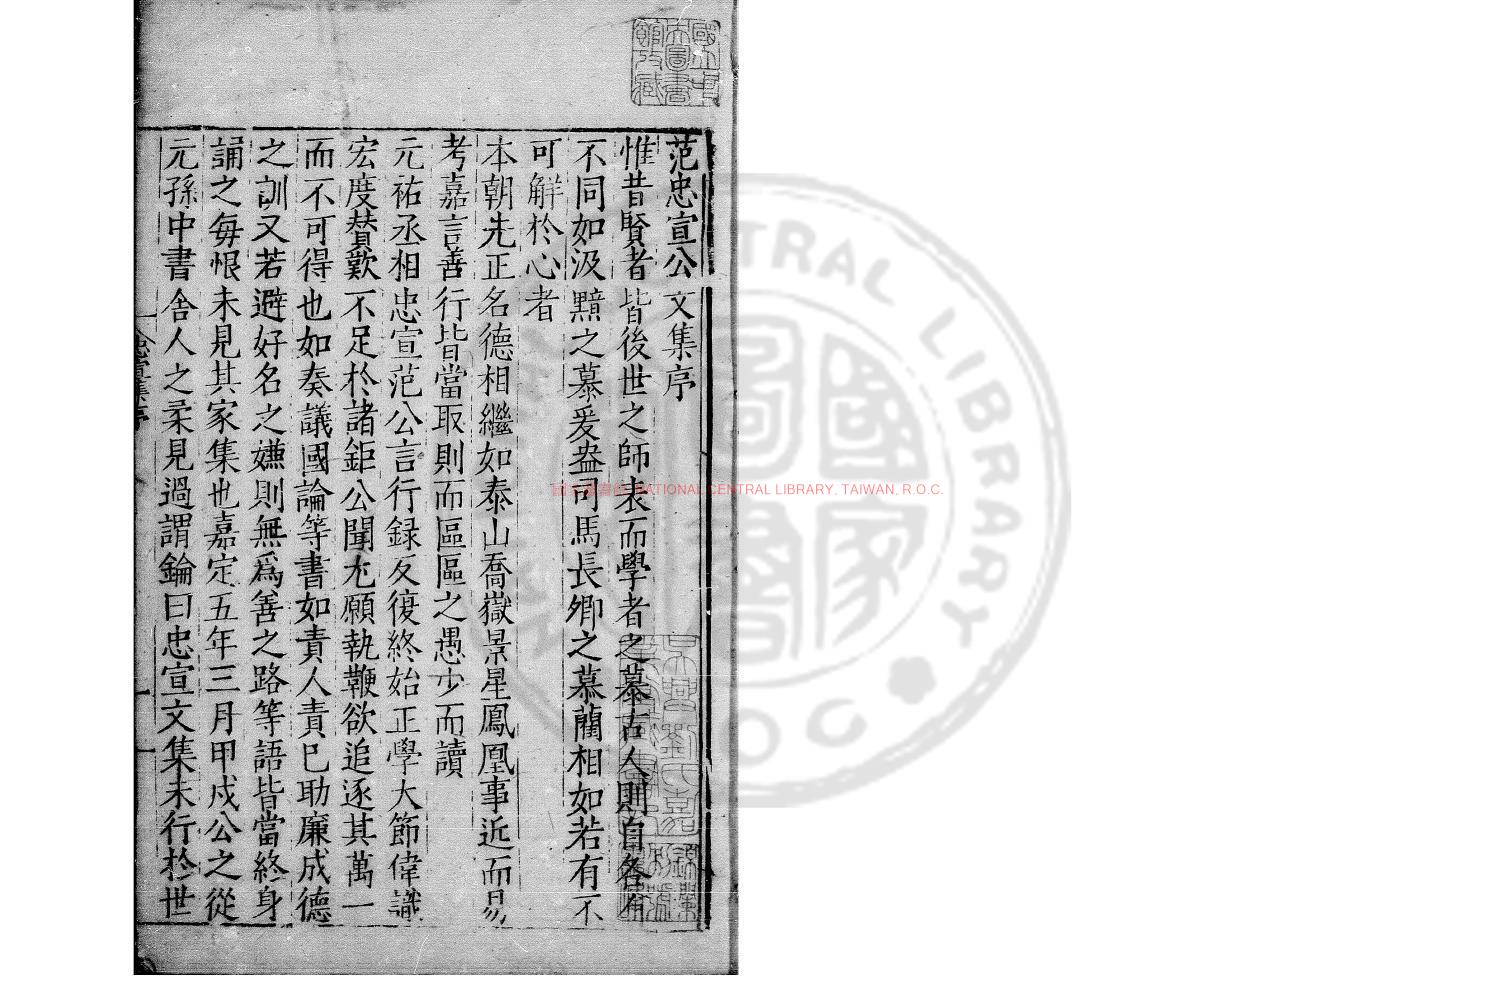 范忠宣公文集序
惟昔賢者皆後世之師表而學者之慕古人則自各有
不同如汲黯之慕爰盎司馬長卿之慕藺相如若有不
可解於心者
本朝先正名德相繼如泰山喬嶽景星鳳凰事近而易
考嘉言善行皆當取則而區區之愚少而讀
元祐丞相忠宣范公言行録反復終始正學大節偉識
宏度賛歎不足於諸鉅公聞尤願執鞭欲追逐其萬一
而不可得也如奏議國論等書如責人責己助廉成德
之訓又若避好名之嫌則無爲善之路等語皆當終身
誦之每恨未見其家集也嘉定五年三月甲戍公之從
元孫中書舎人之柔見過謂鑰曰忠宣文集未行於世
忠宣集序
國立中央圖書館收藏
國家圖書館 NATIONAL CENTRAL LIBRARY, TAIWAN, R.O.C.
CENTRAL LIBRARY